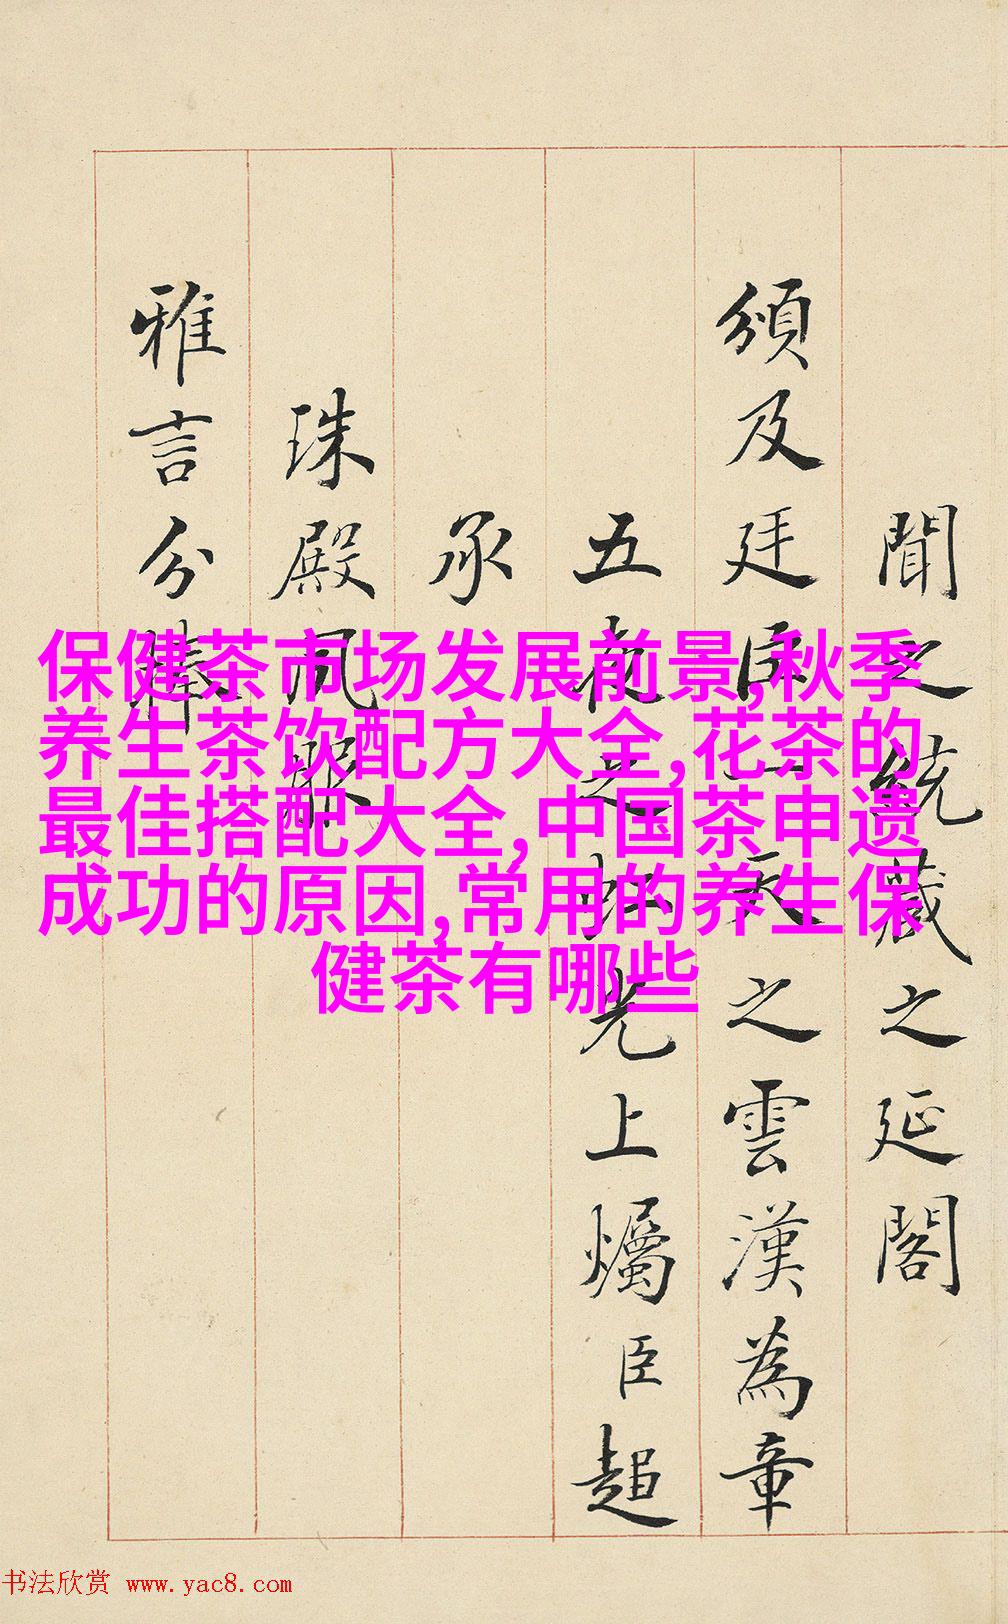 聞之統藏之延閣
頒及廷臣一天之雲漢為章
五夜之虹光上燭臣趨
承
珠殿夙服
雅言分
保健茶市场发展前景,秋季
养生茶饮配方大全,花茶的
最佳搭配大全,中国茶申遗
成功的原因,常用的养生保
健茶有哪些
书法欣赏 www.yac8.com